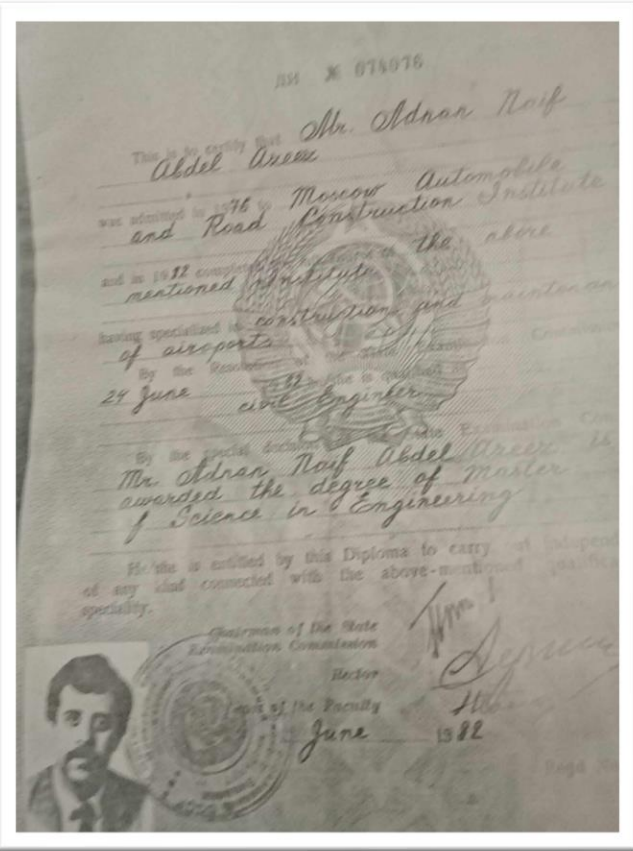 № 074076
This is to certify that Mr. Adnan Naif
Abdel Azeez
was admitted in 1976 to Moscow Automobile
and Road Construction Institute
and in 1982 completed the above
mentioned Institute
having specialized in construction and maintenan
of airports
By the Resolution of the State Examination Commission
24 June 1982 he/she is qualified as
civil Engineer
By the special decision of the State Examination Com
Mr. Adnan Naif Abdel Azeez is
awarded the degree of Master
of Science in Engineering
He/she is entitled by this Diploma to carry out independ
of any kind connected with the above-mentioned qualifica
speciality.
Chairman of the State
Examination Commission
Rector
Dean of the Faculty
June 1982
Regd No